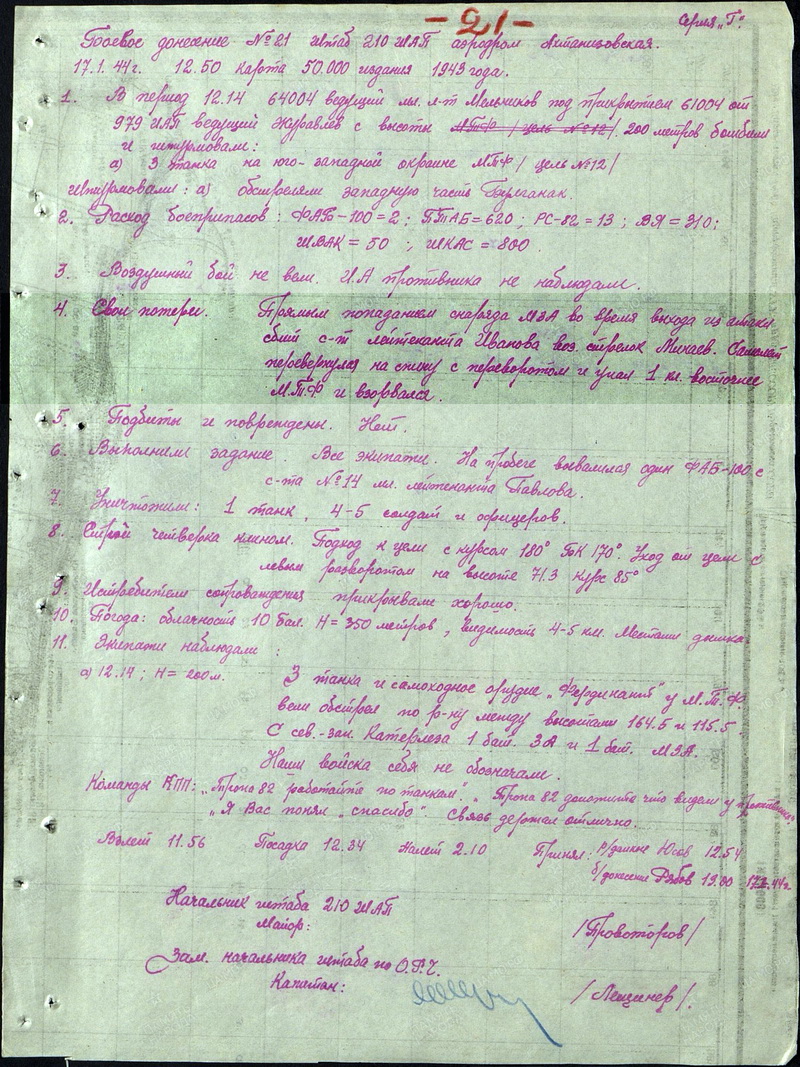 -21-
Серия „Г".
Боевое донесение №21 штаб 210 ШАП аэродром Ахтанизовская.
17.1.44г. 12.50 Карта 50.000 издания 1943 года.
1. В период 12.14 6 4004 ведущий мл. л-т Мельников под прикрытием 6 1004 от
979 ИАП ведущий Журавлев с высоты МТФ /цель №12/ 200 метров бомбили
и штурмовали:
а) 3 танка на юго-западной окраине МТФ /цель №12/
Штурмовали: а) обстреляли западную часть Булганак.
2. Расход боеприпасов: ФАБ-100=2; ПТАБ=620; РС-82=13; ВЯ=310;
ШВАК=50; ШКАС=800.
3. Воздушный бой не вели. И.А противника не наблюдали.
4. Свои потери. Прямым попаданием снаряда МЗА во время выхода из атаки
сбит с-т лейтенанта Иванова воз. стрелок Минаев. Самолет
перевернулся на спину с переворотом и упал 1 км. восточнее
М.Т.Ф и взорвался.
5. Подбиты и повреждены. Нет.
6. Выполнили задание. Все экипажи. На пробеге вывалилая один ФАБ-100 с
с-та №14 мл. лейтенанта Павлова.
7. Уничтожили: 1 танк, 4-5 солдат и офицеров.
8. Строй четверка клином. Подход к цели с курсом 180° БК 170°. Уход от цели с
левым разворотом на высоте 71.3 курс 85°
9. Истребители сопровождения прикрывали хорошо.
10. Погода: облачность 10 бал. Н=350 метров, видимость 4-5 км. Местами дымка
11. Экипажи наблюдали:
а) 12.14; Н=200м. 3 танка и самоходное орудие „Фердинант" у М.Т.Ф
вели обстрел по р-ну между высотами 164.5 и 115.5.
С сев.-зап. Катерлеза 1 бат. ЗА и 1 бат. МЗА.
Наши войска себя не обозначали.
Команды КПП: „Тропа 82 работайте по танкам". „Тропа 82 доложите что видели у противника,
„Я Вас понял „спасибо" Связь держал отлично.
Взлет 11.56 Посадка 12.34 Налет 2.10 Принял: р/данные 12.54
б/донесение Рябов 19.00 17.1.44г.
Начальник штаба 210 ШАП
Майор: /Провоторов/
Зам. начальника штаба по О.Р.Ч.
Капитан: /Лещинер/.